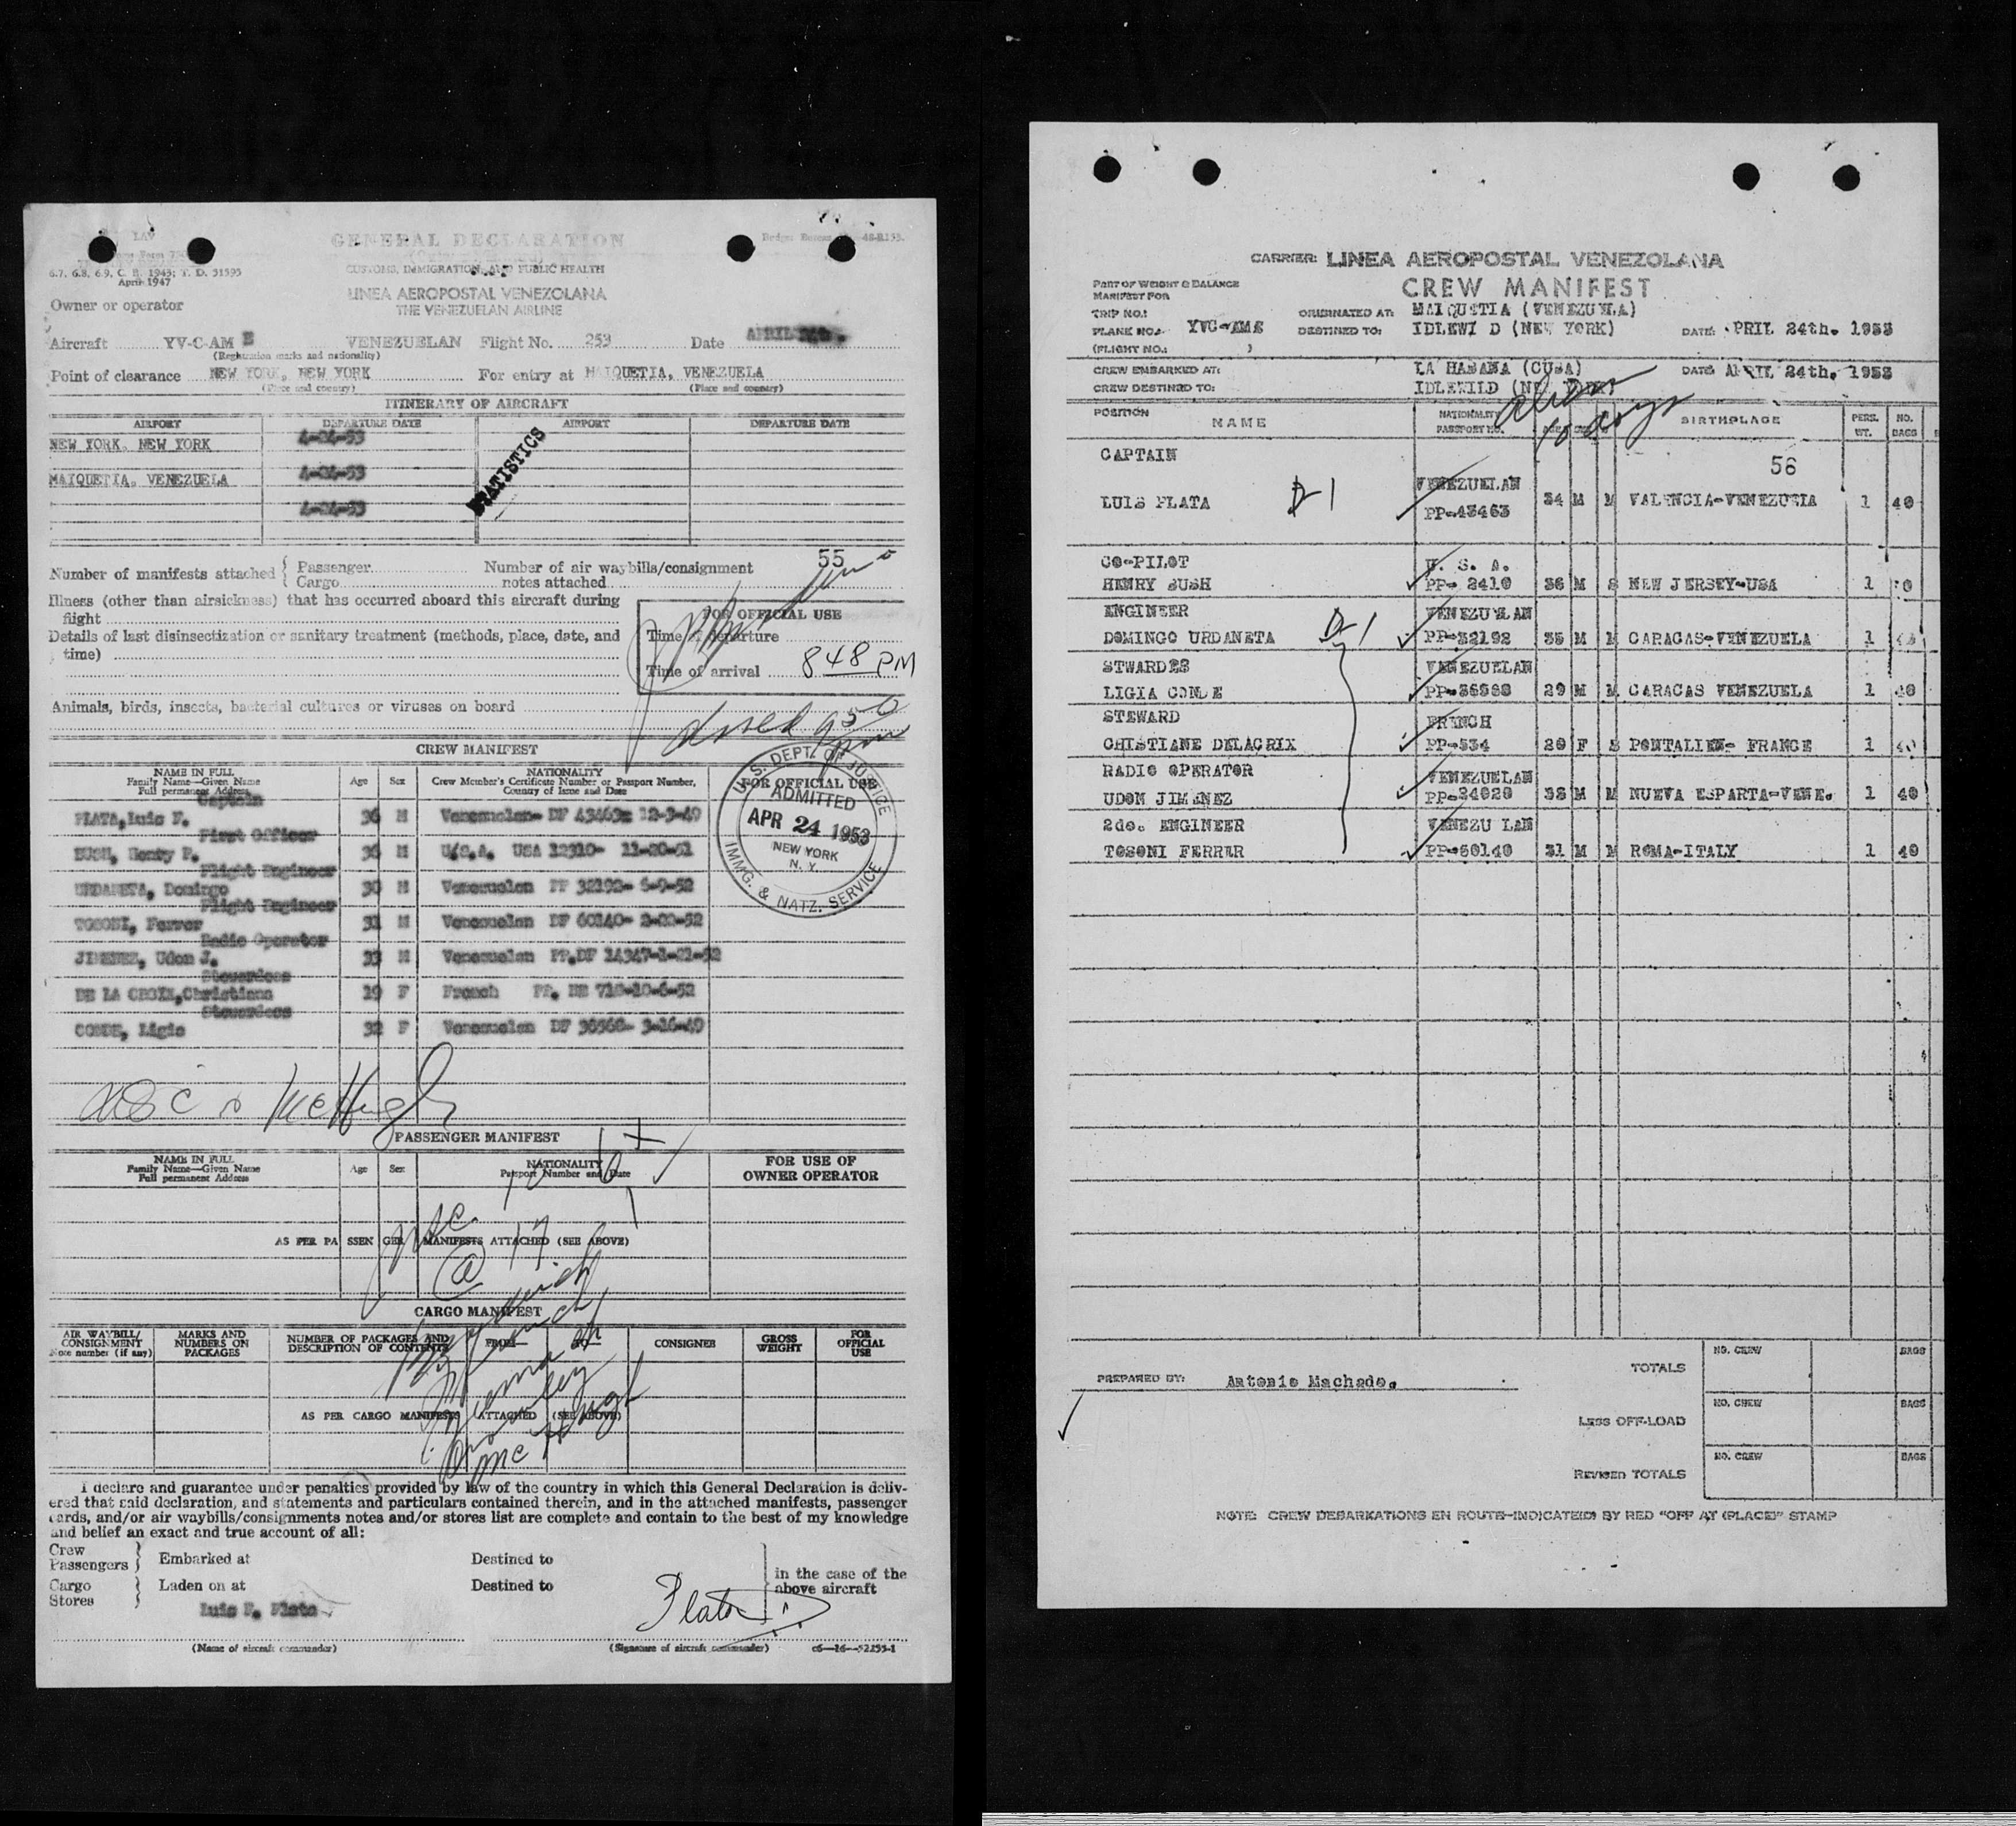 LAV
GENERAL DECLARATION
6.7, 6.8, 6.9, C. R. 1943; T. D. 51595
April 1947
CUSTOMS, IMMIGRATION, AND PUBLIC HEALTH
LINEA AEROPOSTAL VENEZOLANA
THE VENEZUELAN AIRLINE
Owner or operator
Aircraft YV-C-AM E VENEZUELAN Flight No. 253 Date APRIL
(Registration marks and nationality)
Point of clearance NEW YORK, NEW YORK For entry at MAIQUETIA, VENEZUELA
(Place and country) (Place and country)
ITINERARY OF AIRCRAFT
AIRPORT DEPARTURE DATE AIRPORT DEPARTURE DATE
NEW YORK, NEW YORK 4-24-53
MAIQUETIA, VENEZUELA 4-24-53
4-24-53
STATISTICS
55
Number of manifests attached { Passenger Number of air waybills/consignment
Cargo notes attached
Illness (other than airsickness) that has occurred aboard this aircraft during
flight
FOR OFFICIAL USE
Details of last disinsectization or sanitary treatment (methods, place, date, and
time)
Time of departure
Time of arrival 848 PM
Animals, birds, insects, bacterial cultures or viruses on board
CREW MANIFEST
NAME IN FULL Age Sex NATIONALITY FOR OFFICIAL USE
Family Name—Given Name Crew Member's Certificate Number or Passport Number,
Full permanent Address Country of Issue and Date
Captain
PLATA, Luis F. 36 M Venezuelan- DF 43463- 12-3-49
First Officer
BUSH, Henry P. 36 M U.S.A. USA 12310- 11-20-51
Flight Engineer
URDANETA, Domingo 30 M Venezuelan PP 32192- 6-9-52
Flight Engineer
TOSONI, Ferrer 31 M Venezuelan DF 60140- 2-22-52
Radio Operator
JIMENEZ, Udon J. 33 M Venezuelan PP.DF 14347-1-21-52
Stewardess
DE LA CROIX, Christiane 19 F French PP. NE 718-10-6-52
Stewardess
CONDE, Ligia 32 F Venezuelan DF 36568- 3-16-49
U.S. DEPT. OF JUSTICE
ADMITTED
APR 24 1953
NEW YORK
N. Y.
IMMG. & NATZ. SERVICE
McHugh
PASSENGER MANIFEST
NAME IN FULL Age Sex NATIONALITY FOR USE OF
Family Name—Given Name Passport Number and Date OWNER OPERATOR
Full permanent Address
AS PER PASSENGER MANIFESTS ATTACHED (SEE ABOVE)
@ 17
CARGO MANIFEST
AIR WAYBILL/ MARKS AND NUMBER OF PACKAGES AND FROM— TO— CONSIGNEE GROSS FOR
CONSIGNMENT NUMBERS ON DESCRIPTION OF CONTENTS WEIGHT OFFICIAL
Note number (if any) PACKAGES USE
AS PER CARGO MANIFESTS ATTACHED (SEE ABOVE)
Mc Hugh
I declare and guarantee under penalties provided by law of the country in which this General Declaration is deliv-
ered that said declaration, and statements and particulars contained therein, and in the attached manifests, passenger
cards, and/or air waybills/consignments notes and/or stores list are complete and contain to the best of my knowledge
and belief an exact and true account of all:
Crew
Passengers } Embarked at Destined to
in the case of the
above aircraft
Cargo
Stores } Laden on at Destined to
Luis F. Plata
Plata
(Name of aircraft commander) (Signature of aircraft commander) c6—16—52255-1
CARRIER: LINEA AEROPOSTAL VENEZOLANA
CREW MANIFEST
PART OF WEIGHT & BALANCE
MANIFEST FOR
TRIP NO.: ORIGINATED AT: MAIQUETIA (VENEZUELA)
PLANE NO.: YVC-AME DESTINED TO: IDLEWI D (NEW YORK) DATE: PRIL 24th. 1953
(FLIGHT NO.: )
CREW EMBARKED AT: LA HABANA (CUBA) DATE: APRIL 24th. 1953
CREW DESTINED TO: IDLEWILD (NEW YORK)
POSITION NAME NATIONALITY PASSPORT NO. AGE SEX BIRTHPLACE PERS. WT. NO. BAGS
56
CAPTAIN VENEZUELAN
LUIS PLATA D-1 PP-43463 34 M M VALENCIA-VENEZUELA 1 40
CO-PILOT U. S. A.
HENRY BUSH PP- 2410 36 M S NEW JERSEY-USA 1
ENGINEER VENEZUELAN
DOMINGO URDANETA D-1 PP-32192 35 M M CARACAS-VENEZUELA 1
STWARDES VENEZUELAN
LIGIA CONDE PP-36968 29 M M CARACAS VENEZUELA 1 40
STEWARD FRENCH
CHISTIANE DELACRIX PP-534 20 F S PONTALIEN- FRANCE 1 40
RADIO OPERATOR VENEZUELAN
UDON JIMENEZ PP-24020 38 M M NUEVA ESPARTA-VENE. 1 40
2do. ENGINEER VENEZU LAN
TOSONI FERRER PP-60140 31 M M ROMA-ITALY 1 40
PREPARED BY: Antonio Machado.
TOTALS NO. CREW BAGS
LESS OFF-LOAD NO. CREW BAGS
REVISED TOTALS NO. CREW BAGS
NOTE: CREW DEBARKATIONS EN ROUTE-INDICATE(D) BY RED "OFF AT (PLACE)" STAMP